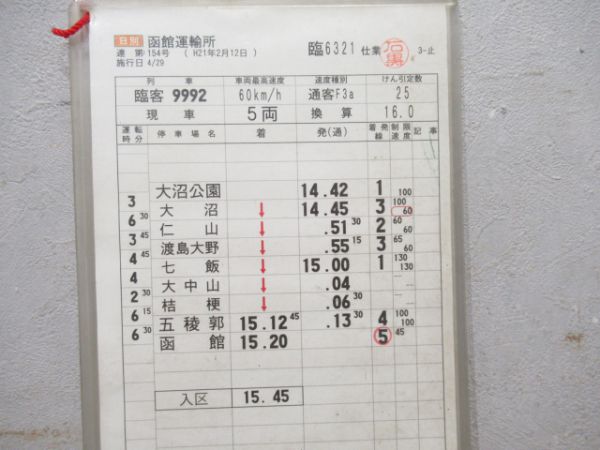 日別 函館運輸所
達 第 154号 ( H21年2月12日 ) 臨6321 仕業 石黒 3-止
施行日 4/29
列 車 車両最高速度 速度種別 けん引定数
臨客 9992 60km/h 通客F3a 25
現 車 5両 換 算 16.0
運転時分 停車場名 着 発(通) 着発線 制限速度 記事
大沼公園 14.42 1 100
3
大 沼 ↓ 14.45 3 100 60
6 30
仁 山 ↓ .51 30 2 60 60
3 45
渡島大野 ↓ .55 15 3 65 60
4 45
七 飯 ↓ 15.00 1 130 130
4
大中山 ↓ .04
2 30
桔 梗 ↓ .06 30
6 15
五稜郭 15.12 45 .13 30 4 100 100
6 30
函 館 15.20 5 45
入区 15.45